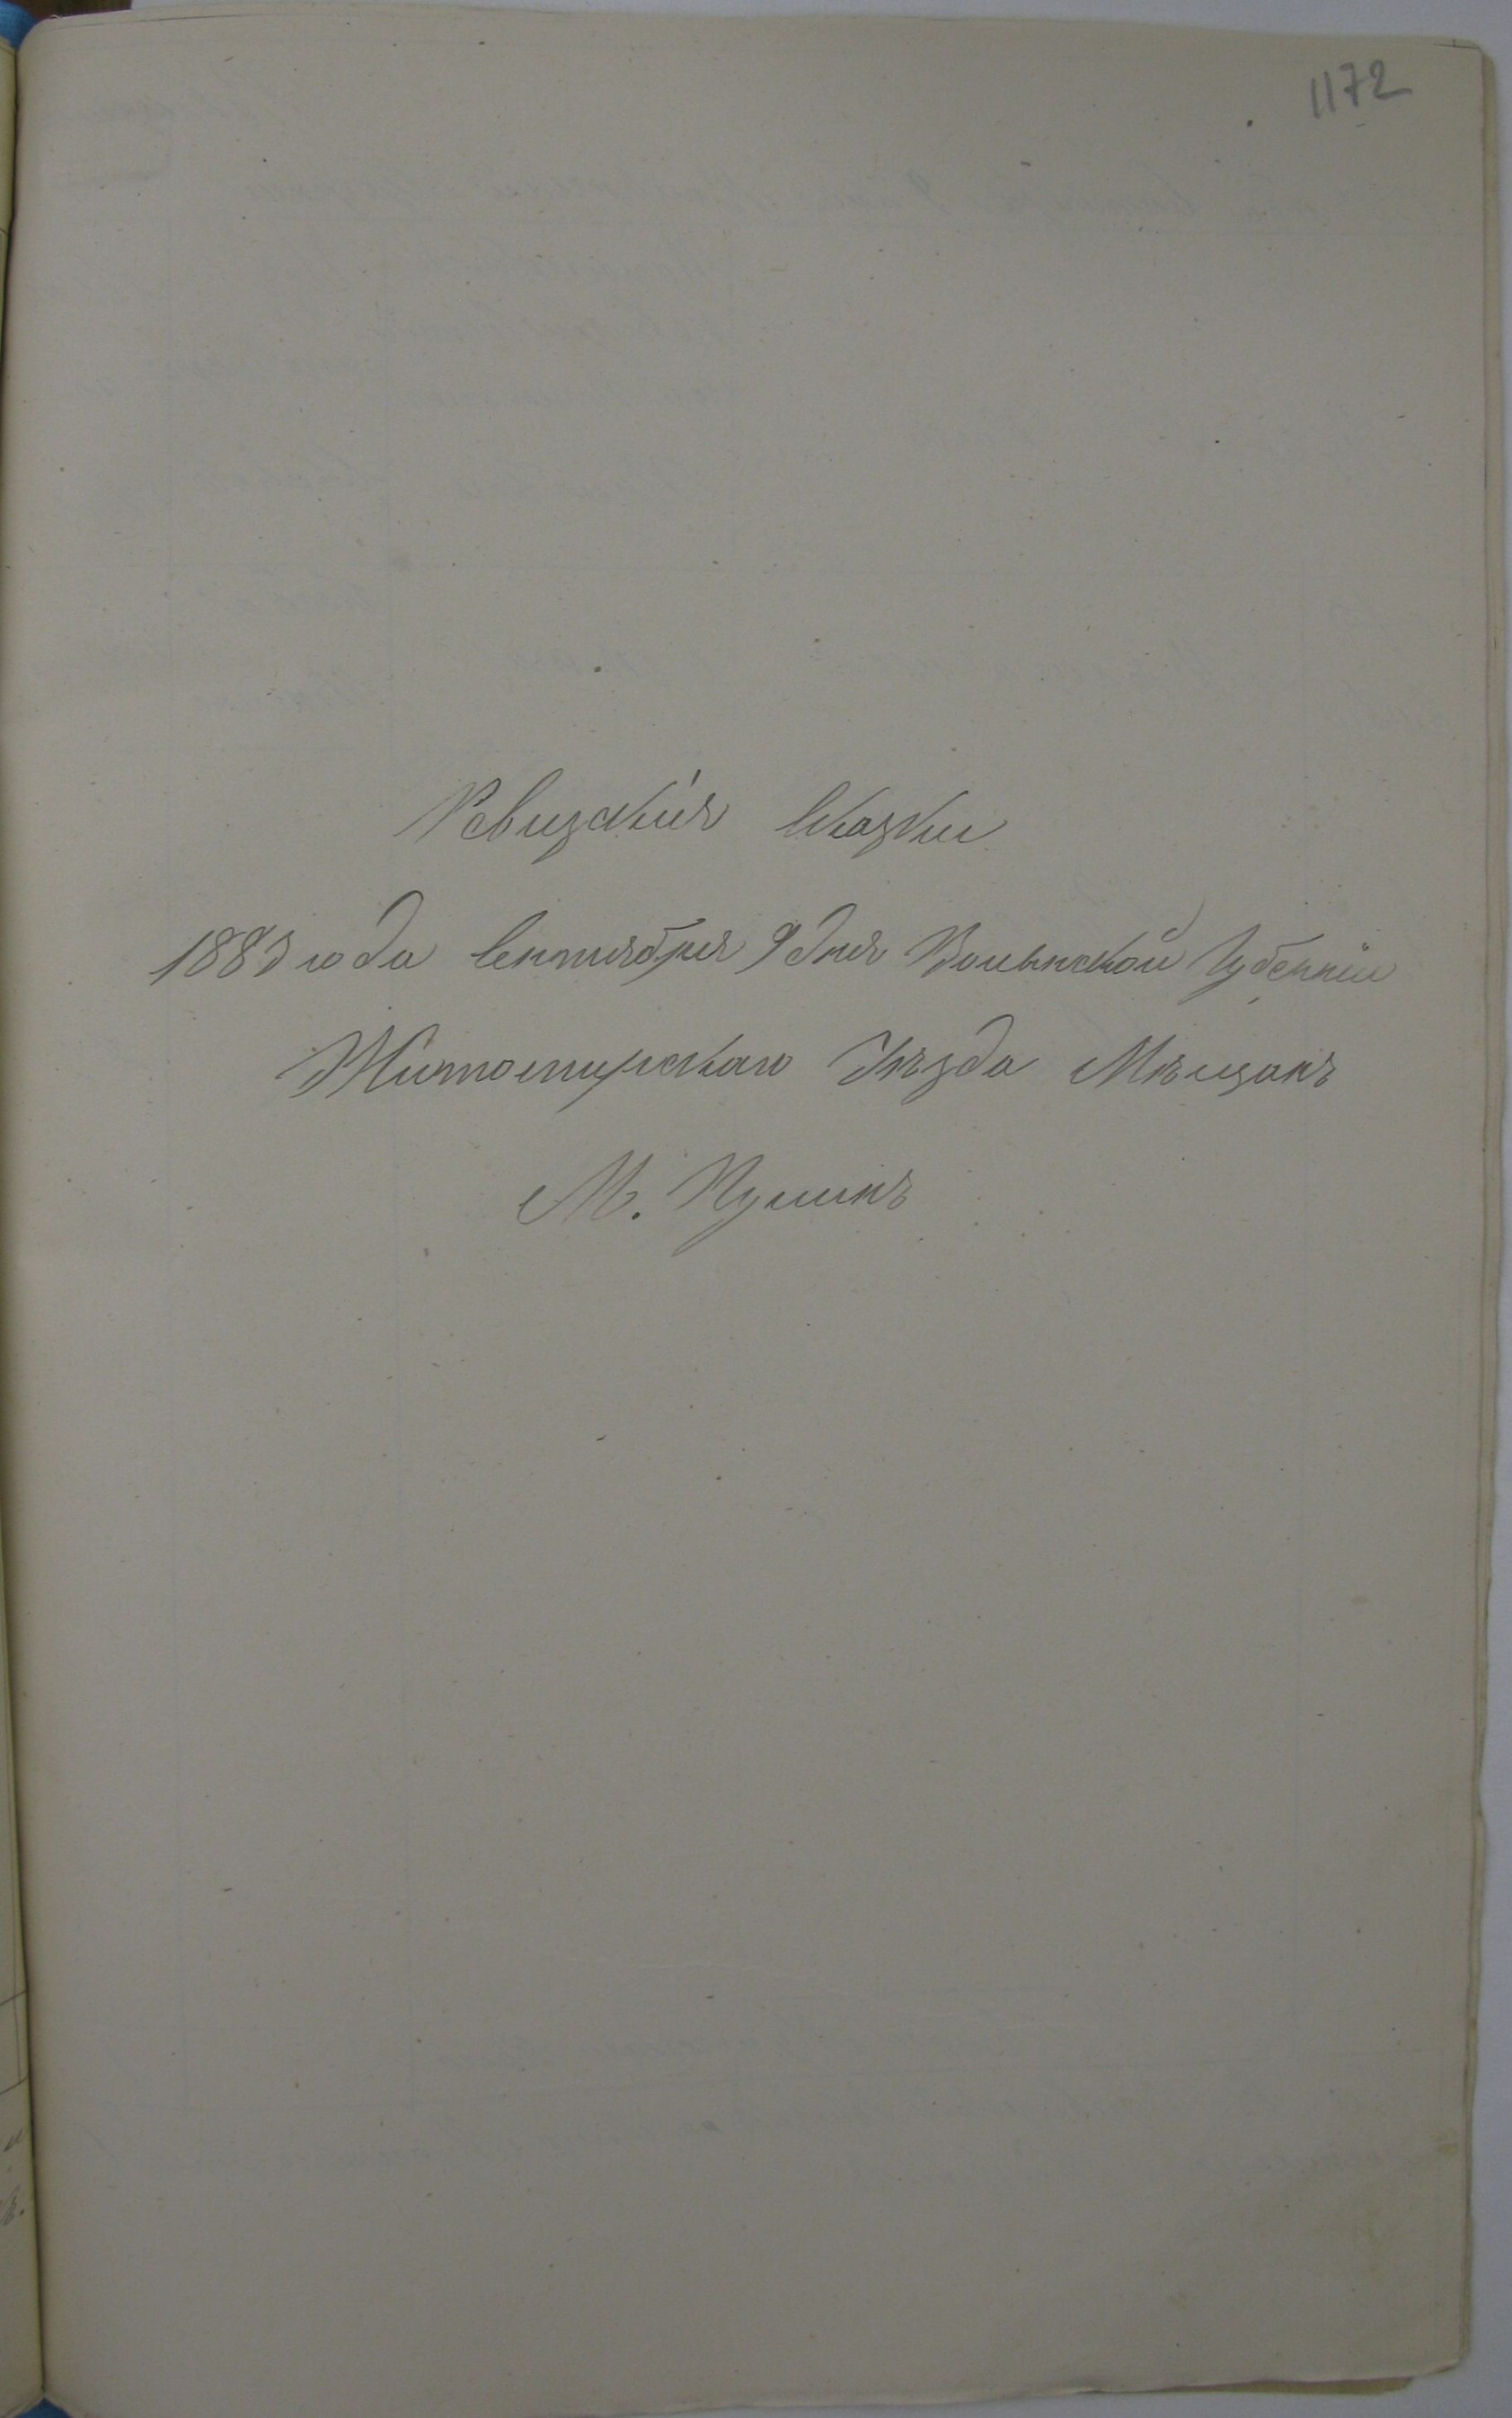 1172
Ревизскія Сказки
1883 года Сентября 9 дня Волынской Губерніи
Житомирскаго Уѣзда Мѣщанъ
М. Пулинъ